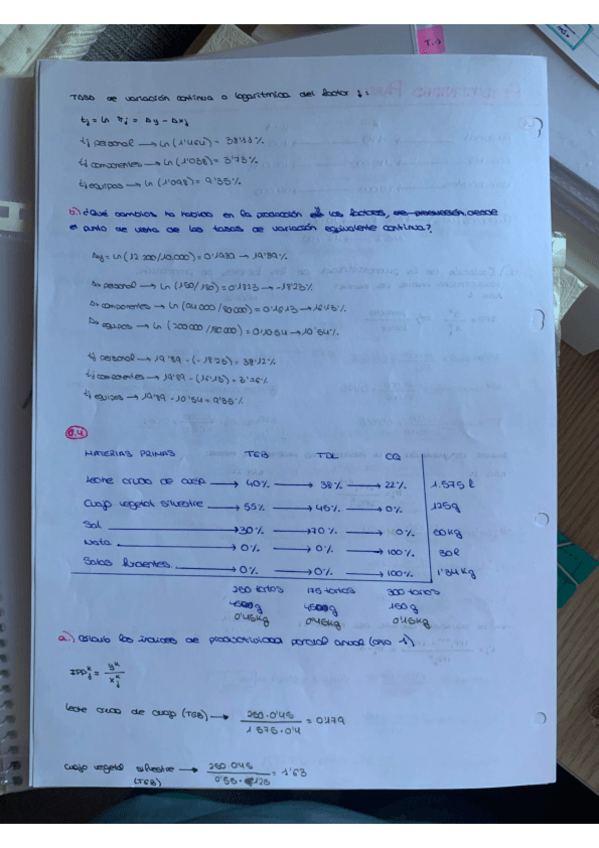 T.3
Tasa de variación continua o logarítmica del factor j:
tj = ln πj = Δy - Δxj
tj personal → ln (1'464) = 38'13%
tj componentes → ln (1'038) = 3'73%
tj equipos → ln (1'098) = 9'35%
b) ¿Qué cambios ha habido en la producción los factores, desde
el punto de vista de las tasas de variación equivalente continua?
Δy = ln (12 200/10.000) = 0'1989 → 19'89%
Δ personal → ln (150/180) = 0'1823 → -18'23%
Δ componentes → ln (94.000/80000) = 0'1613 → 16'13%
Δ equipos → ln (200000/180000) = 0'1054 → 10'54%
tj personal → 19'89 - (-18'23) = 38'12%
tj componentes → 19'89 - (16'13) = 3'76%
tj equipos → 19'89 - 10'54 = 9'35%
3.4
MATERIAS PRIMAS TGB TDL CQ
Leche cruda de oveja → 40% → 38% → 22% 1.575 l
Cuajo vegetal silvestre → 55% → 45% → 0% 125g
Sal → 30% → 70% → 0% 60kg
Nata → 0% → 0% → 100% 30l
Sales fundentes → 0% → 0% → 100% 1'34kg
250 tortas 175 tortas 300 tortas
150g
0'45kg 0'45kg 0'45kg
a) Calcula los índices de productividad parcial anual (año 1)
Leche cruda de oveja (TGB) → 250·0'45 / 1575·0'4 = 0'179
Cuajo vegetal silvestre → 250·0'45 / 0'55·125 = 1'63
(TGB)